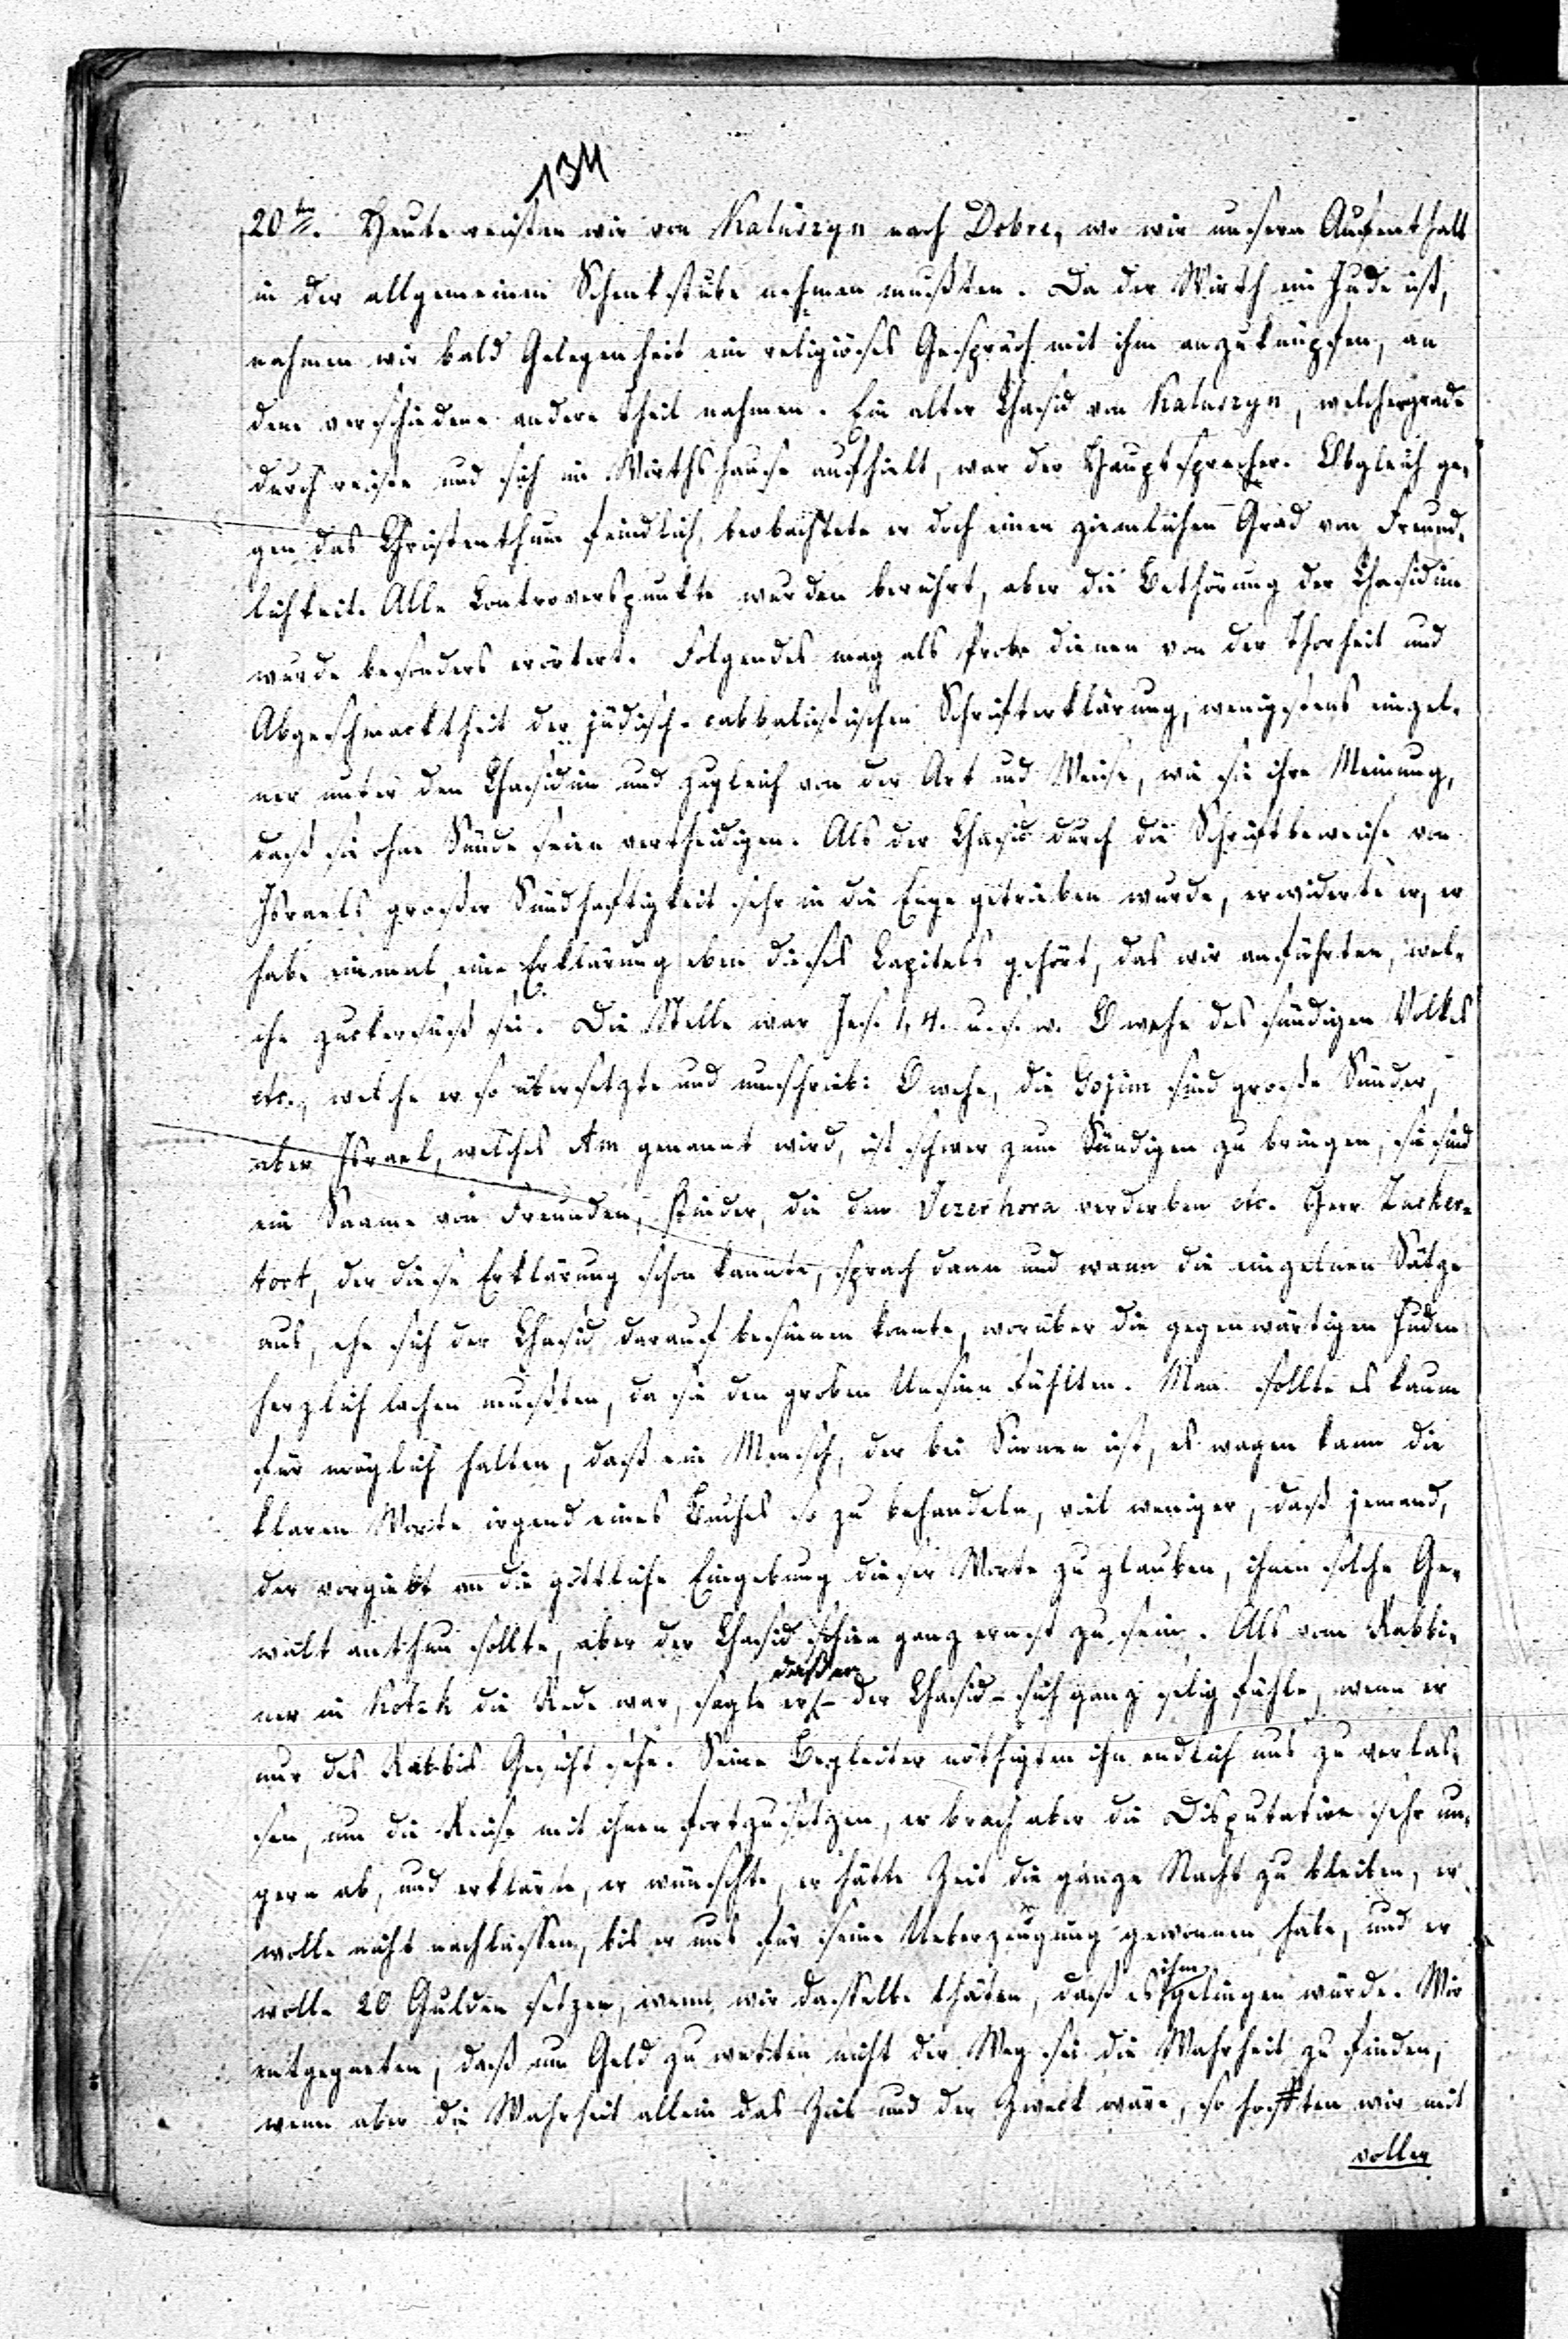 134
20ten. Heute reisten wir von Kaluszyn nach Dobre, wo wir unsern Aufenthalt
in der allgemeinen Schenkstube nehmen mußten. Da der Wirth ein Jude ist,
nahmen wir bald Gelegenheit ein religiöses Gespräch mit ihm anzuknüpfen, an
dem verschiedene andere Theil nahmen. Ein alter Chasid von Kaluszyn, welcher grade
durch reiste und sich im Wirthshause aufhielt, war der Hauptsprecher. Obgleich ge-
gen das Christenthum feindlich, beobachtete er doch einen ziemlichen Grad von Freund-
lichkeit. Alle Controverspunkte wurden berührt, aber die Bethörung der Chasidim
wurde besonders erörtert. Folgendes mag als Probe dienen von der Thorheit und
Abgeschmacktheit der jüdisch-cabbalistischen Schrifterklärung, wenigstens einzel-
ner unter den Chasidim und zugleich von der Art und Weise, wie sie ihre Meinung,
daß sie ohne Sünde seien vertheidigen. Als der Chasid durch die Schriftbeweise von
Israels großer Sündhaftigkeit sehr in die Enge getrieben wurde, erwiderte er, er
habe einmal eine Erklärung eben dieses Capitels gehört, das wir anführten, wel-
che zuckersüß sei. Die Stelle war Jes. 1, 4. u. s. w. O wehe des sündigen Volkes
etc., welche er so übersetzte und umschrieb: O wehe, die Gojim sind große Sünder,
aber Israel, welches Am genannt wird, ist schwer zum Sündigen zu bringen, sie sind
ein Saame von Freunden, Kinder, die den Jezerhora verderben etc. Herr Zucker-
tort, der diese Erklärung schon kannte, sprach dann und wann die einzelnen Sätze
aus, ehe sich der Chasid darauf besinnen konnte, worüber die gegenwärtigen Juden
herzlich lachen mußten, da sie den groben Unsinn fühlten. Man sollte es kaum
für möglich halten, daß ein Mensch, der bei Sinnen ist, es wagen kann die
klaren Worte irgend eines Buches so zu behandeln, viel weniger, daß jemand,
der vorgiebt an die göttliche Eingebung dieser Worte zu glauben, ihnen solche Ge-
walt anthun sollte, aber der Chasid schien ganz ernst zu sein. Als vom Rabbi-
ner in Kotzk die Rede war, sagte er, daß er – der Chasid – sich ganz selig fühle, wenn er
nur des Rabbis Gesicht sehe. Seine Begleiter nöthigten ihn endlich uns zu verlas-
sen, um die Reise mit ihnen fortzusetzen, er brach aber die Disputation sehr un-
gern ab, und erklärte, er wünschte, er hätte Zeit die ganze Nacht zu bleiben, er
wolle nicht nachlassen, bis er uns für seine Ueberzeugung gewonnen habe, und er
wolle 20 Gulden setzen, wenn wir dasselbe thäten, daß es ihm gelingen würde. Wir
entgegneten, daß um Geld zu wetten nicht der Weg sei die Wahrheit zu finden,
wenn aber die Wahrheit allein das Ziel und der Zweck wäre, so hofften wir mit
voller